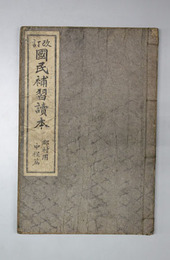 改訂
國民補習讀本